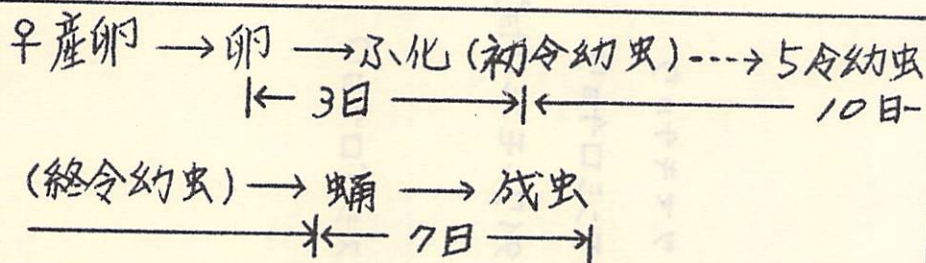 ♀産卵 → 卵 → ふ化 (初令幼虫) ----→ 5令幼虫
|← 3日 →|← 10日-
(終令幼虫) → 蛹 → 成虫
→|← 7日 →|